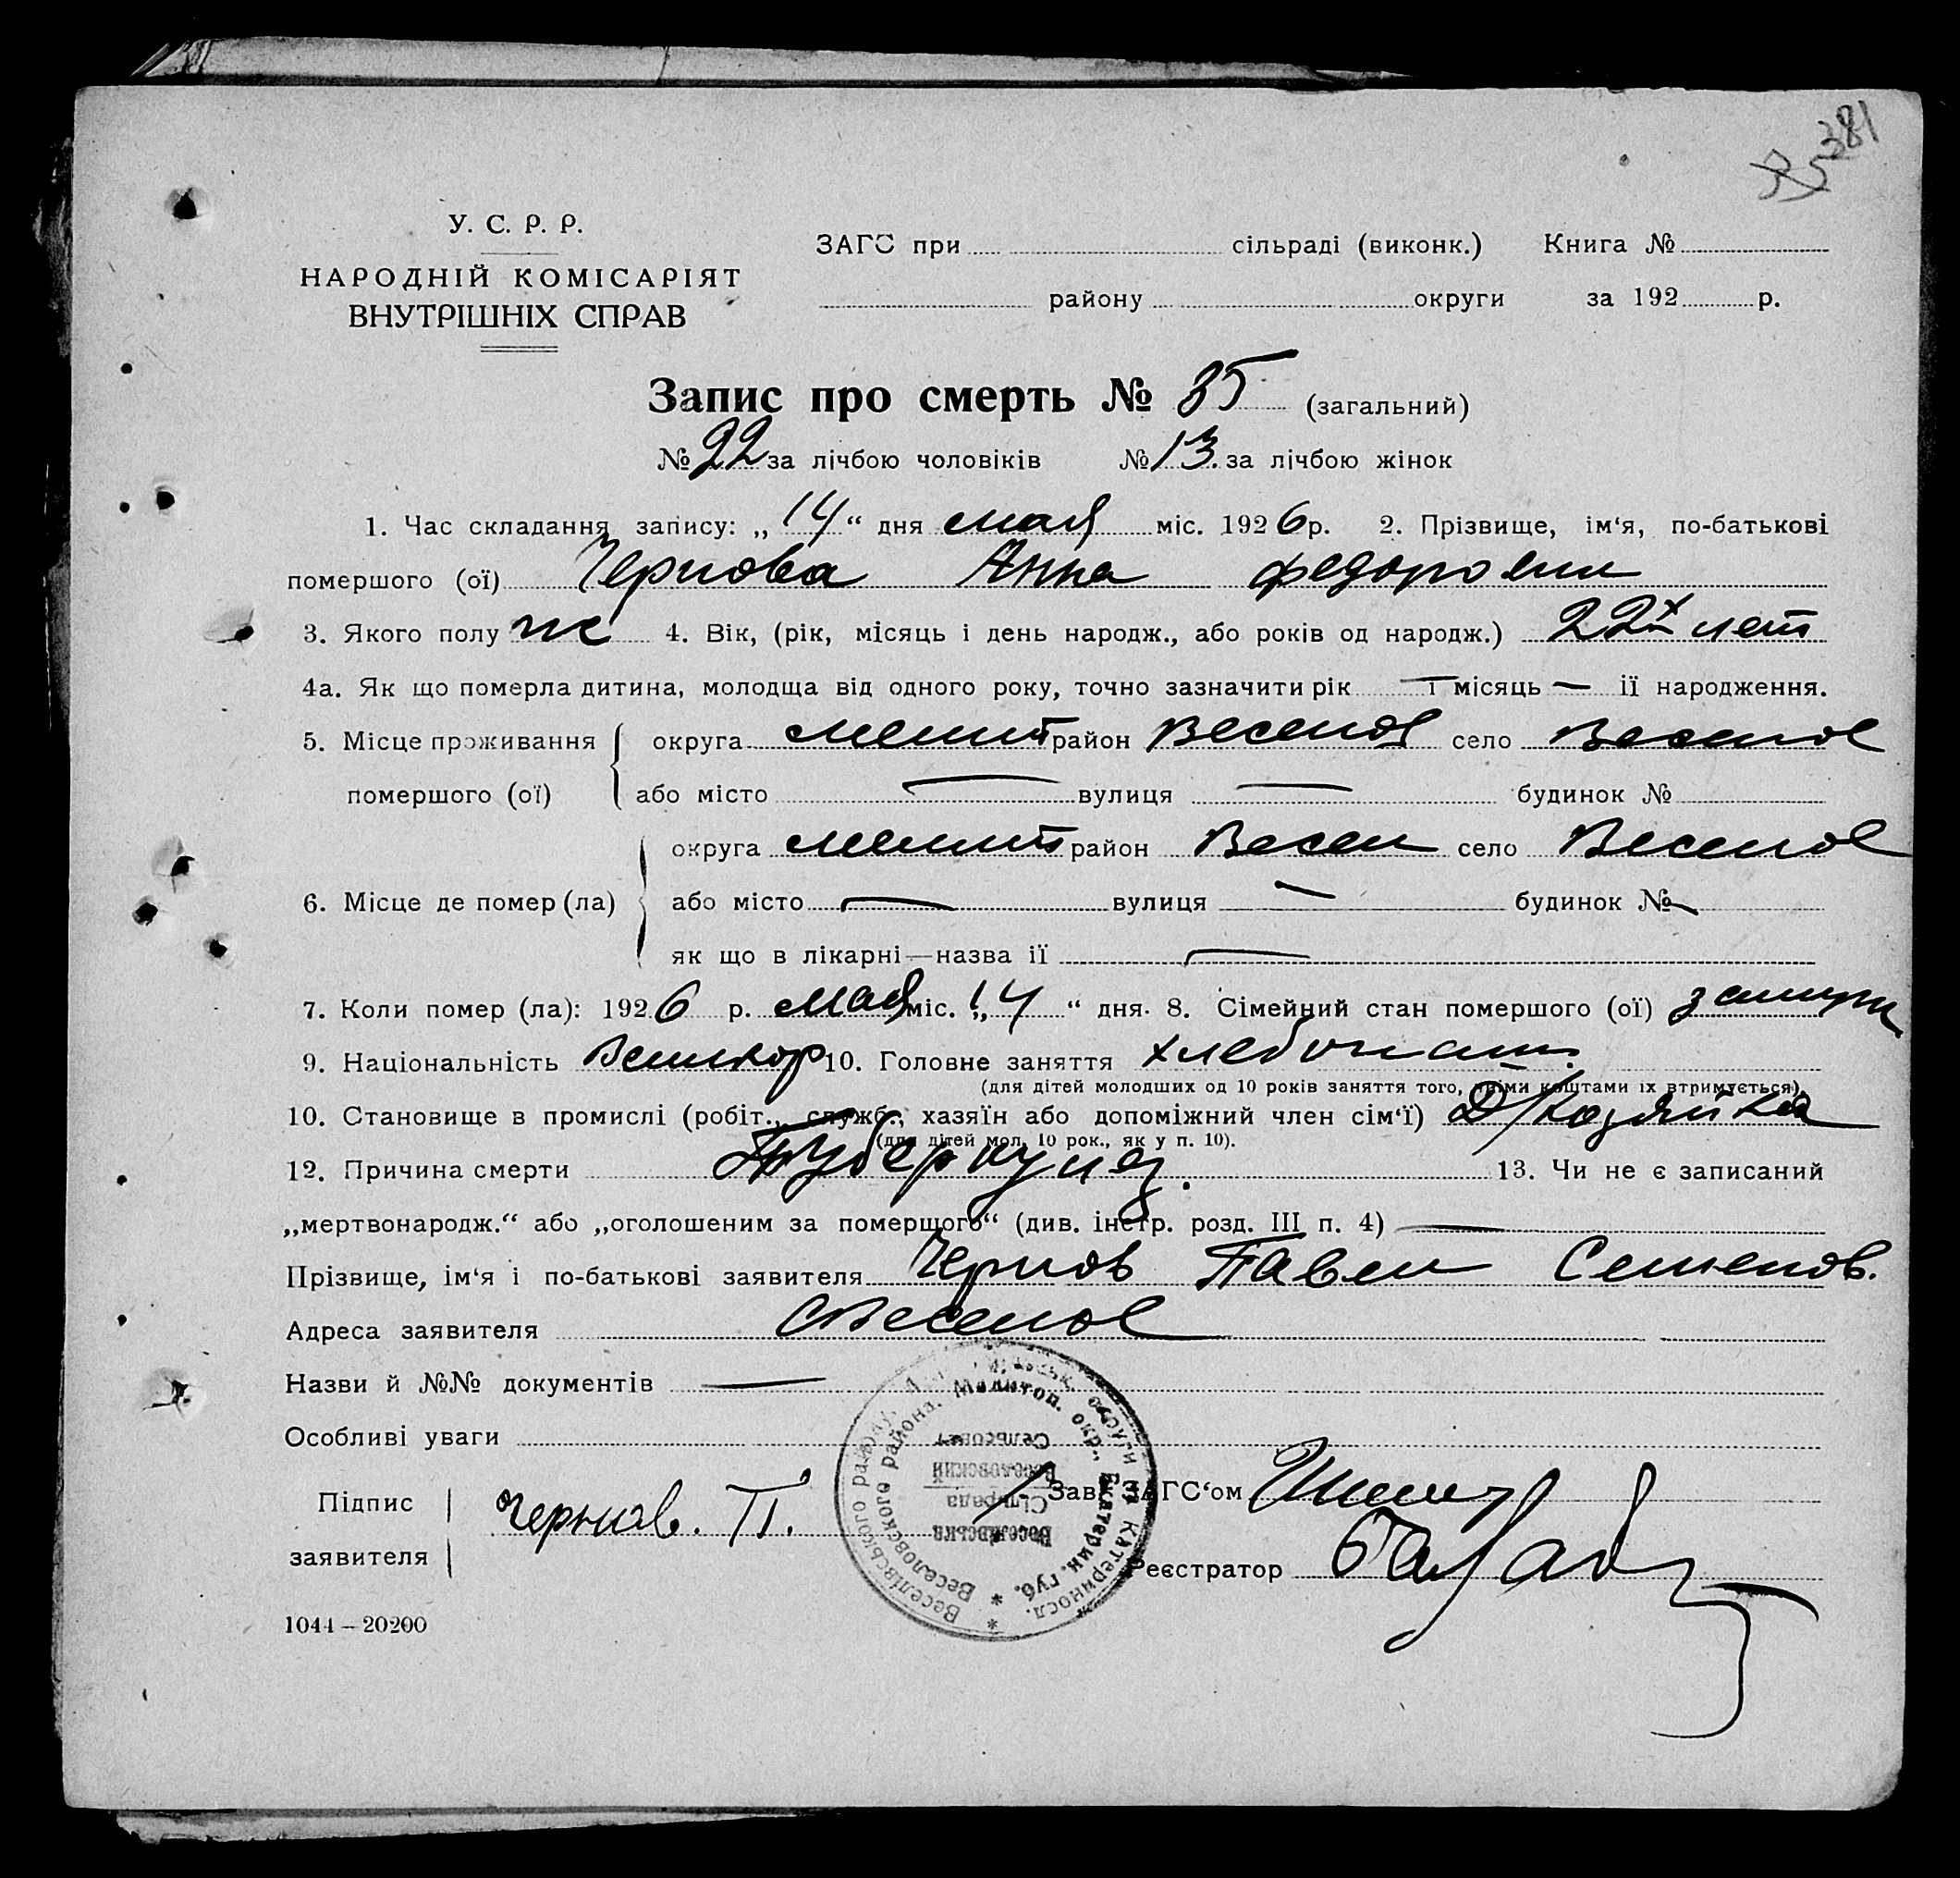 381
35
У. С. Р. Р.
НАРОДНІЙ КОМІСАРІЯТ
ВНУТРІШНІХ СПРАВ
ЗАГС при сільраді (виконк.) Книга №
району округи за 192 р.
Запис про смерть № 35 (загальний)
№ 22 за лічбою чоловіків № 13. за лічбою жінок
1. Час складання запису: „ 14 “ дня мая міс. 1926 р. 2. Прізвище, ім‘я, по-батькові
помершого (ої) Чернова Анна Федоровна
3. Якого полу ж 4. Вік, (рік, місяць і день народж., або років од народж.) 22х лет
4а. Як що померла дитина, молодща від одного року, точно зазначити рік — і місяць — ії народження.
5. Місце проживання округа Мелит район Веселов село Веселое
помершого (ої) або місто — вулиця — будинок №
округа Мелит район Весел село Веселое
6. Місце де помер (ла) або місто — вулиця — будинок № —
як що в лікарні—назва ії —
7. Коли помер (ла): 1926 р. мая міс. „14 “ дня. 8. Сімейний стан помершого (ої) замужн
9. Національність Великор 10. Головне заняття хлебопаш.
(для дітей молодших од 10 років заняття того, чиїми коштами іх втримується)
10. Становище в промислі (робіт., службг., хазяїн або допоміжний член сім‘ї) Д/Хозяйка
(для дітей мол. 10 рок., як у п. 10).
12. Причина смерти Туберкулез. 13. Чи не є записаний
„мертвонародж.“ або „оголошеним за померщого“ (див. інстр. розд. III п. 4) —
Прізвище, ім‘я і по-батькові заявителя Чернов Павел Семенов.
Адреса заявителя с Веселое
Назви й №№ документів —
Особливі уваги
Підпис
заявителя Чернов. П.
Зав. ЗАГС‘ом
Реєстратор
Веселівського району, округи на Катериносл.
Веселовского района. Мелитоп. окр., Екатерин. губ.
Веселівська
Сільрада
Веселовский
Сельсовет
1044 – 20200